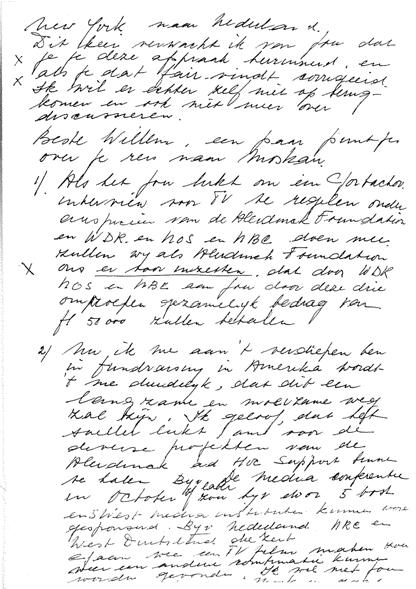 New York naar Nederland.
Dit keer verwacht ik van jou dat
x je je deze afspraak herinnerd, en
x als je dat fair vindt corrigeerd.
Ik wil er echter zelf niet op terug-
komen en ook niet meer over
discussieren.
Beste Willem, een paar puntjes
over je reis naar Moskou
1) Als het jou lukt om een Gorbachov
interview voor TV te regelen onder
auspicien van de Foundation
en WDR en NOS en NBC doen mee
zullen wij als Foundation
x ons er voor inzetten, dat door WDR
NOS en NBC aan jou door deze drie
omroepen gezamelijk bedrag van
fl 50 000 zullen betalen
2) Nu ik me aan't verdiepen ben
in fundraising in Amerika wordt
't me duidelijk, dat dit een
langzame en moeizame weg
zal zijn. Ik geloof, dat het
sneller lukt, om voor de
diverse projekten van de
ad Hoc Support binnen
te halen. Bijv. de Media conferentie
in October zou bijv door 5 Oost
en 5 West media instituten kunnen worden
gesponsord. Bijv Nederland NRC en
West Duitsland die Zeit
een TV film maken
weer een andere combinatie kunnen
worden gevonden. Ik wil niet jou